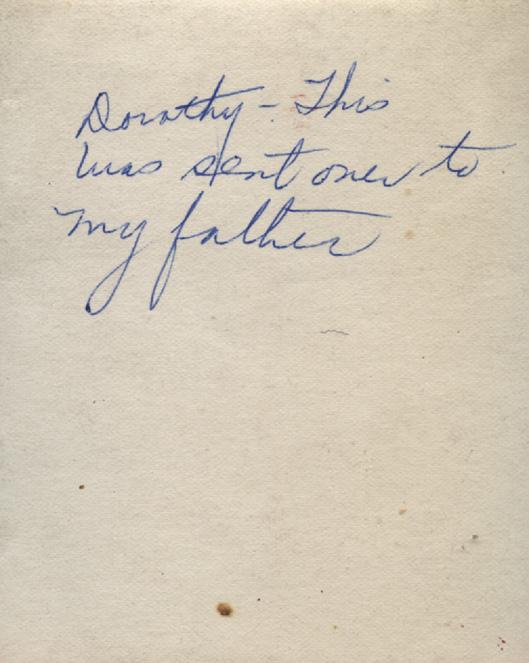 Dorothy - This
was sent over to
my father